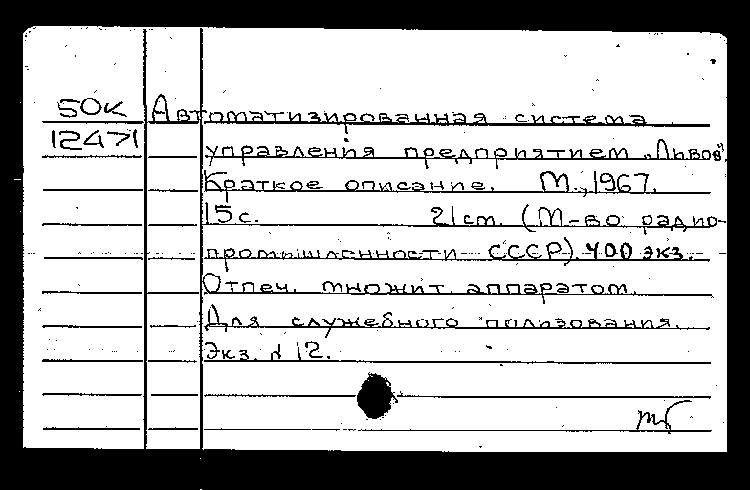 50К Автоматизированная система
12471
управления предприятием „Львов".
Краткое описание. М., 1967.
15с. 21см. (М-во радио-
промышленности СССР). 400 экз.
Отпеч. множит. аппаратом.
Для служебного пользования.
Экз. № 12.